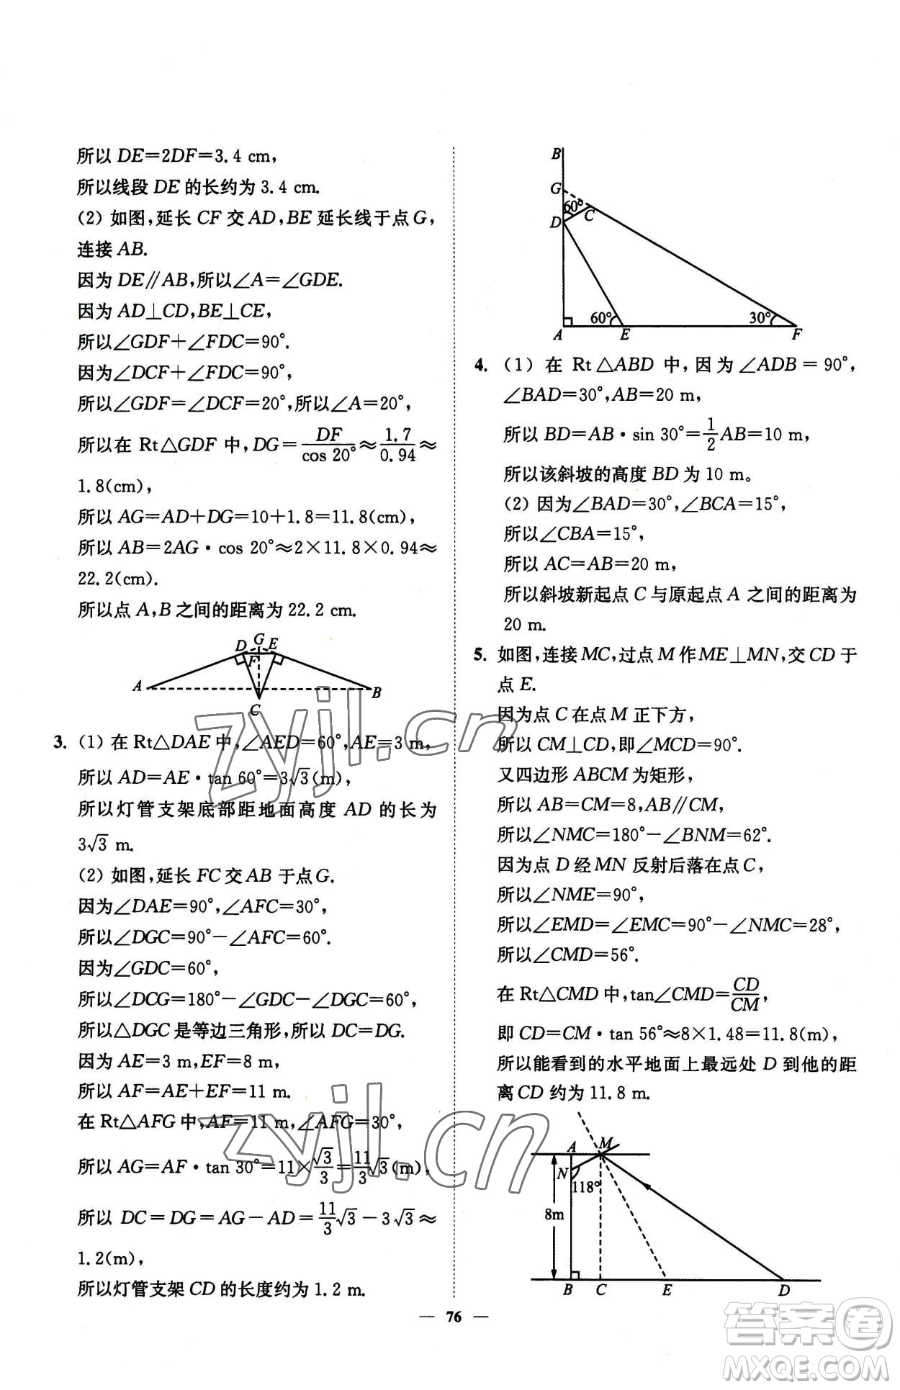 所以 DE=2DF=3.4 cm,
所以线段 DE 的长约为 3.4 cm.
(2) 如图,延长 CF 交 AD,BE 延长线于点 G,
连接 AB.
因为 DE∥AB,所以∠A=∠GDE.
因为 AD⊥CD,BE⊥CE,
所以∠GDF+∠FDC=90°.
因为∠DCF+∠FDC=90°,
所以∠GDF=∠DCF=20°,所以∠A=20°,
所以在 Rt△GDF 中,DG=DF/cos 20°≈1.7/0.94≈
1.8(cm),
所以 AG=AD+DG=10+1.8=11.8(cm),
所以 AB=2AG·cos 20°≈2×11.8×0.94≈
22.2(cm).
所以点 A,B 之间的距离为 22.2 cm.
D G E
F
A B
C
3. (1) 在 Rt△DAE 中,∠AED=60°,AE=3 m,
所以 AD=AE·tan 60°=3√3(m),
所以灯管支架底部距地面高度 AD 的长为
3√3 m.
(2) 如图,延长 FC 交 AB 于点 G.
因为∠DAE=90°,∠AFC=30°,
所以∠DGC=90°-∠AFC=60°.
因为∠GDC=60°,
所以∠DCG=180°-∠GDC-∠DGC=60°,
所以△DGC 是等边三角形,所以 DC=DG.
因为 AE=3 m,EF=8 m,
所以 AF=AE+EF=11 m.
在 Rt△AFG 中,AF=11 m,∠AFG=30°,
所以 AG=AF·tan 30°=11×√3/3=11/3√3(m),
所以 DC=DG=AG-AD=11/3√3-3√3≈
1.2(m),
所以灯管支架 CD 的长度约为 1.2 m.
B
G
60° C
D
60° 30°
A E F
4. (1) 在 Rt△ABD 中,因为∠ADB=90°,
∠BAD=30°,AB=20 m,
所以 BD=AB·sin 30°=1/2AB=10 m,
所以该斜坡的高度 BD 为 10 m.
(2) 因为∠BAD=30°,∠BCA=15°,
所以∠CBA=15°,
所以 AC=AB=20 m,
所以斜坡新起点 C 与原起点 A 之间的距离为
20 m.
5. 如图,连接 MC,过点 M 作 ME⊥MN,交 CD 于
点 E.
因为点 C 在点 M 正下方,
所以 CM⊥CD,即∠MCD=90°.
又四边形 ABCM 为矩形,
所以 AB=CM=8,AB∥CM,
所以∠NMC=180°-∠BNM=62°.
因为点 D 经 MN 反射后落在点 C,
所以∠NME=90°,
所以∠EMD=∠EMC=90°-∠NMC=28°,
所以∠CMD=56°.
在 Rt△CMD 中,tan∠CMD=CD/CM,
即 CD=CM·tan 56°≈8×1.48=11.8(m),
所以能看到的水平地面上最远处 D 到他的距
离 CD 约为 11.8 m.
A M
N
118°
8m
B C E D
— 76 —
zyjl.cn
zyjl.cn
答案圈
MXQE.COM